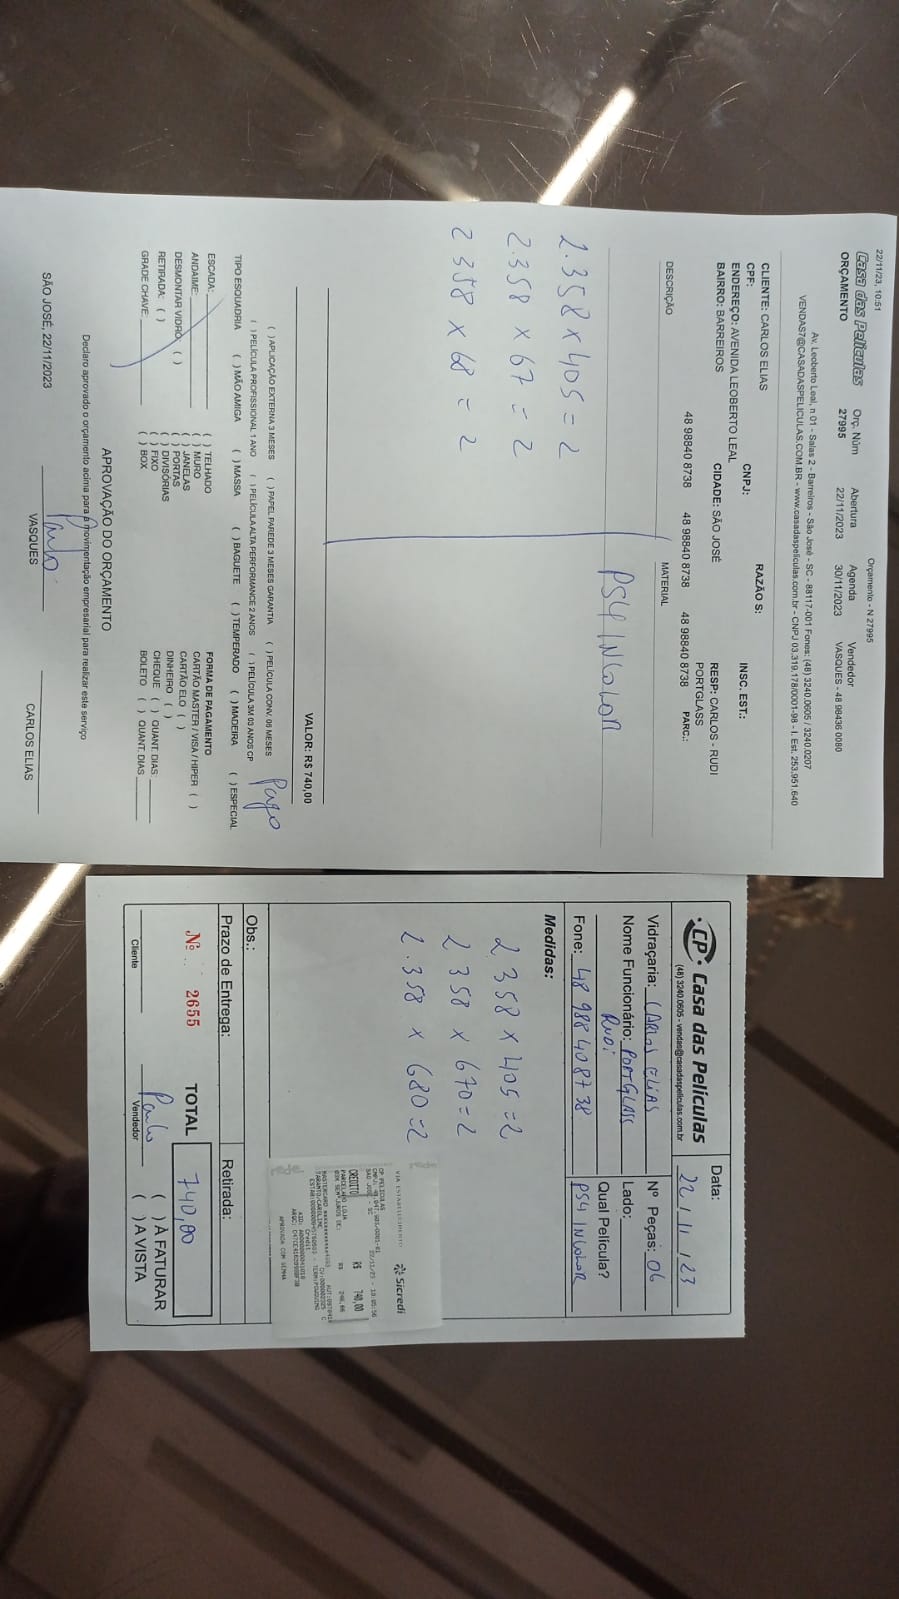 22/11/23, 10:51
Orçamento - N 27995
Casa das Películas
ORÇAMENTO
Orç. Núm
27995
Abertura
22/11/2023
Agenda
30/11/2023
Vendedor
VASQUES - 48 98436 0080
Av. Leoberto Leal, n 01 - Salas 2 - Barreiros - São José - SC - 88117-001 Fones: (48) 3240.0605 / 3240.0207
VENDAS7@CASADASPELICULAS.COM.BR - www.casadaspeliculas.com.br - CNPJ 03.319.178/0001-98 - I. Est. 253.951.640
CLIENTE: CARLOS ELIAS
RAZÃO S:
CPF:
CNPJ:
INSC. EST.:
ENDEREÇO: AVENIDA LEOBERTO LEAL
BAIRRO: BARREIROS
CIDADE: SÃO JOSÉ
RESP: CARLOS - RUDI
PORTGLASS
48 98840 8738
48 98840 8738
48 98840 8738
PARC.:
DESCRIÇÃO
MATERIAL
PS4 INCOLOR
2.358 x 405 = 2
2.358 x 67 = 2
2 358 x 68 = 2
VALOR: R$ 740,00
( ) APLICAÇÃO EXTERNA 3 MESES ( ) PAPEL PAREDE 3 MESES GARANTIA ( ) PELÍCULA CONV. 06 MESES
( ) PELÍCULA PROFISSIONAL 1 ANO ( ) PELÍCULA ALTA PERFORMANCE 2 ANOS ( ) PELÍCULA 3M 03 ANOS CP
Pago
TIPO ESQUADRIA ( ) MÃO AMIGA ( ) MASSA ( ) BAGUETE ( ) TEMPERADO ( ) MADEIRA ( ) ESPECIAL
ESCADA:
ANDAIME:
DESMONTAR VIDRO: ( )
RETIRADA: ( )
GRADE CHAVE:
( ) TELHADO
( ) MURO
( ) JANELAS
( ) PORTAS
( ) DIVISÓRIAS
( ) FIXO
( ) BOX
FORMA DE PAGAMENTO
CARTÃO MASTER / VISA / HIPER ( )
CARTÃO ELO ( )
DINHEIRO ( )
CHEQUE ( ) QUANT. DIAS:
BOLETO ( ) QUANT. DIAS
APROVAÇÃO DO ORÇAMENTO
Declaro aprovado o orçamento acima para a movimentação empresarial para realizar este serviço
SÃO JOSÉ, 22/11/2023
Paulo
VASQUES
CARLOS ELIAS
CP Casa das Películas
(48) 3240.0605 - vendas@casadaspeliculas.com.br
Data:
22 / 11 / 23
Vidraçaria: CARLOS ELIAS
Nº Peças: 06
Nome Funcionário: PORTGLASS
Rudi
Lado:
Qual Película?
Fone: 48 98840 8738
PS4 INCOLOR
Medidas:
2 358 x 405 = 2
2 358 x 670 = 2
2.358 x 680 = 2
Sicredi
VIA ESTABELECIMENTO
CP PELICULAS
SAO JOSE - SC
CREDITO
R$ 740,00
PARCELADO LOJA
APROVADA COM SENHA
Obs.:
Prazo de Entrega:
Retirada:
Nº 2655
TOTAL
740,00
( ) À FATURAR
( ) A VISTA
Cliente
Paulo
Vendedor